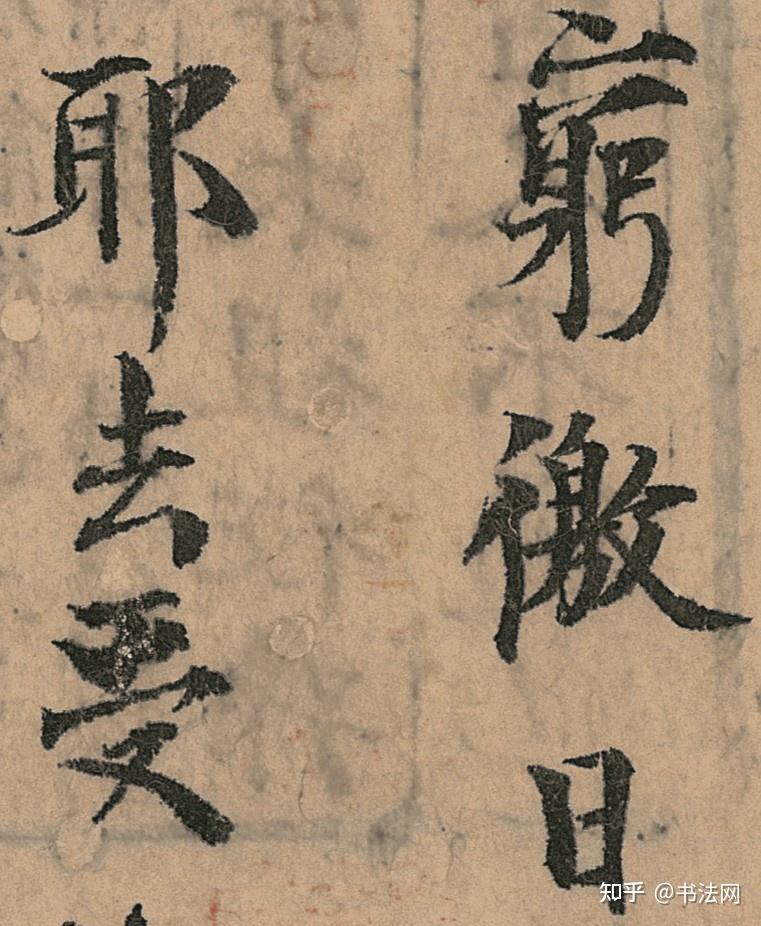 窮徼日
耶去受
知乎 @书法网